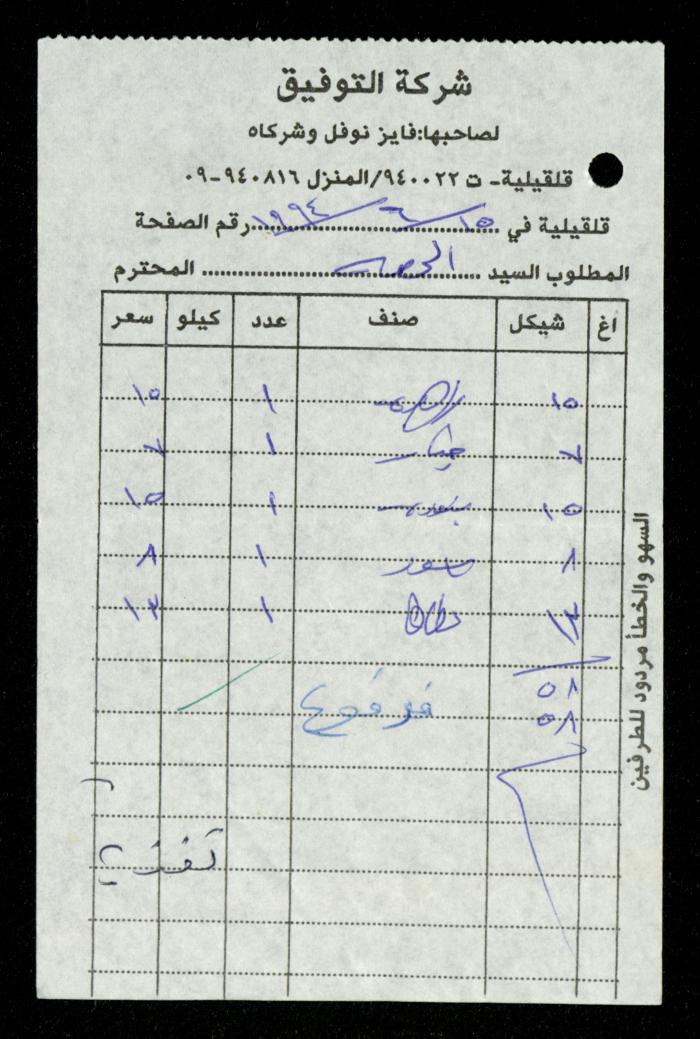 شركة التوفيق
لصاحبها:فايز نوفل وشركاه
قلقيلية- ت ٩٤٠٠٢٢/المنزل ٩٤٠٨١٦-٠٩
قلقيلية في ١٥/٦/١٩٩٤ رقم الصفحة
المطلوب السيد المحترم
اغ شيكل صنف عدد كيلو سعر
١٥ ١ ١٥
٧ خيار ١ ٧
١٥ بندورة ١ ١٥
٨ ١ ٨
١٣ بطاطا ١ ١٣
٥٨
٥٨ مدفوع
السهو والخطأ مردود للطرفين